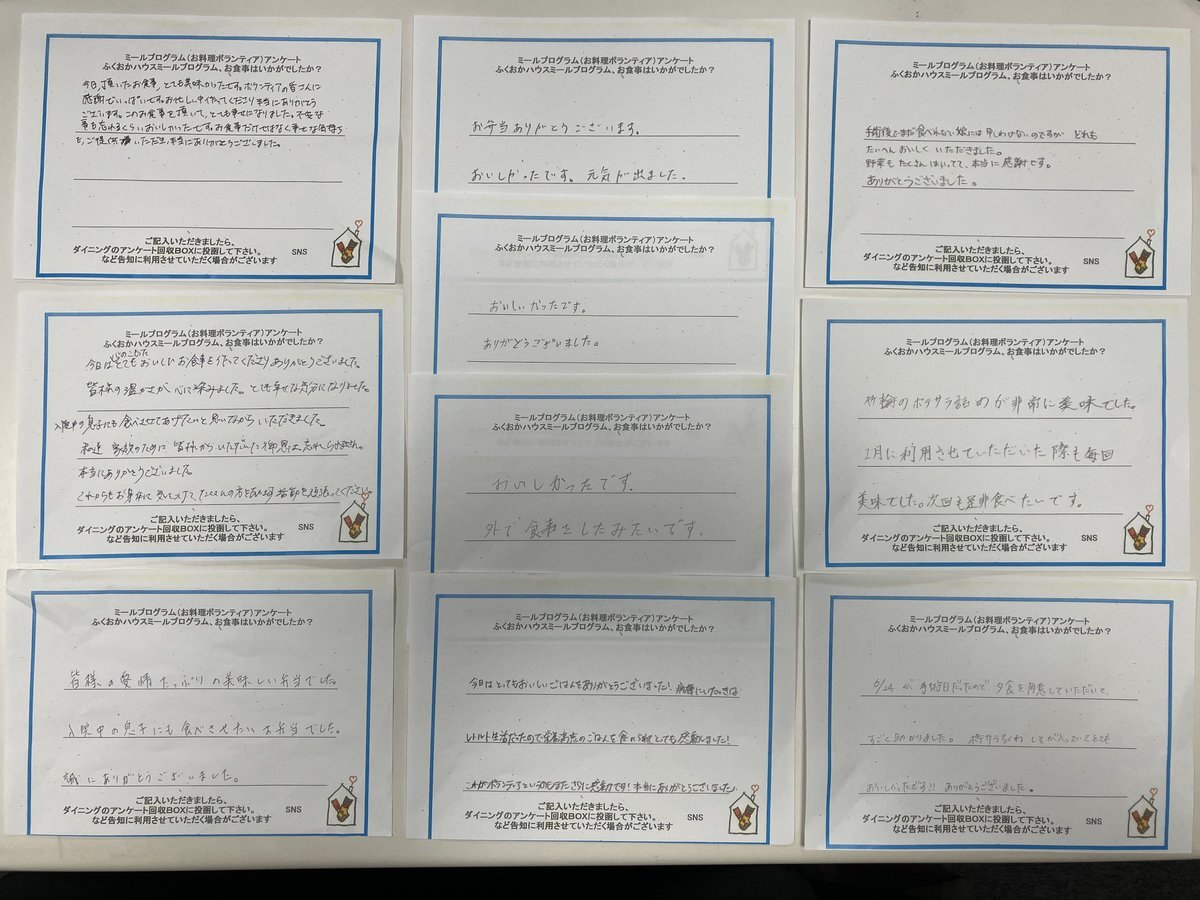 ミールプログラム(お料理ボランティア)アンケート
ふくおかハウスミールプログラム、お食事はいかがでしたか?
今日、頂いたお食事、とても美味かったです。ボランティアの皆さんに
感謝でいっぱいです。お忙しい中作ってくださり本当にありがとう
ございます。このお食事を頂いて、とても幸せになりました。不安な
事も忘れるくらいおいしかったです。お食事だけではなく幸せな気持ち
を、ご提供頂いただき、本当にありがとうございました。
ご記入いただきましたら、
ダイニングのアンケート回収BOXに投函して下さい。 SNS
など告知に利用させていただく場合がございます
ミールプログラム(お料理ボランティア)アンケート
ふくおかハウスミールプログラム、お食事はいかがでしたか?
今日は心のこもったとてもおいしいお食事を作ってくださりありがとうございました。
皆様の温かさが心に染みました。とても幸せな気分になりました。
入院中の息子にも食べさせてあげたいと思いながらいただきました。
私達家族のために皆様からいただいた御恩は忘れられません。
本当にありがとうございました。
これからもお身体に気をつけて、たくさんの方を助ける活動を頑張ってください
ご記入いただきましたら、
ダイニングのアンケート回収BOXに投函して下さい。 SNS
など告知に利用させていただく場合がございます
ミールプログラム(お料理ボランティア)アンケート
ふくおかハウスミールプログラム、お食事はいかがでしたか?
皆様の愛情たっぷりの美味しい弁当でした。
入院中の息子にも食べさせたいお弁当でした。
誠にありがとうございました。
ご記入いただきましたら、
ダイニングのアンケート回収BOXに投函して下さい。 SNS
など告知に利用させていただく場合がございます
ミールプログラム(お料理ボランティア)アンケート
ふくおかハウスミールプログラム、お食事はいかがでしたか?
お弁当ありがとうございます。
おいしかったです。元気が出ました。
ミールプログラム(お料理ボランティア)アンケート
ふくおかハウスミールプログラム、お食事はいかがでしたか?
おいしいかったです。
ありがとうございました。
ミールプログラム(お料理ボランティア)アンケート
ふくおかハウスミールプログラム、お食事はいかがでしたか?
おいしかったです。
外で食事をしたみたいです。
ミールプログラム(お料理ボランティア)アンケート
ふくおかハウスミールプログラム、お食事はいかがでしたか?
今日はとってもおいしいごはんをありがとうございました!病棟にいたときは
レトルト生活だったので栄養満点のごはんを食べられてとっても感動しました!
これがボランティアというのもまたさらに感動です!本当にありがとうございました
ご記入いただきましたら、
ダイニングのアンケート回収BOXに投函して下さい。 SNS
など告知に利用させていただく場合がございます
ミールプログラム(お料理ボランティア)アンケート
ふくおかハウスミールプログラム、お食事はいかがでしたか?
手術後でまだ食べれない娘には申しわけないのですが どれも
たいへんおいしくいただきました。
野菜もたくさんはいってて、本当に感謝です。
ありがとうございました。
ご記入いただきましたら、
ダイニングのアンケート回収BOXに投函して下さい。 SNS
など告知に利用させていただく場合がございます
ミールプログラム(お料理ボランティア)アンケート
ふくおかハウスミールプログラム、お食事はいかがでしたか?
竹輪のポテサラ詰めが非常に美味でした。
1月に利用させていただいた際も毎回
美味でした。次回も是非食べたいです。
ご記入いただきましたら、
ダイニングのアンケート回収BOXに投函して下さい。 SNS
など告知に利用させていただく場合がございます
ミールプログラム(お料理ボランティア)アンケート
ふくおかハウスミールプログラム、お食事はいかがでしたか?
6/24が手術日だったので夕食を用意していただいて、
すごく助かりました。ポテサラちくわ が入っていてとても
おいしかったです!! ありがとうございました。
ご記入いただきましたら、
ダイニングのアンケート回収BOXに投函して下さい。 SNS
など告知に利用させていただく場合がございます